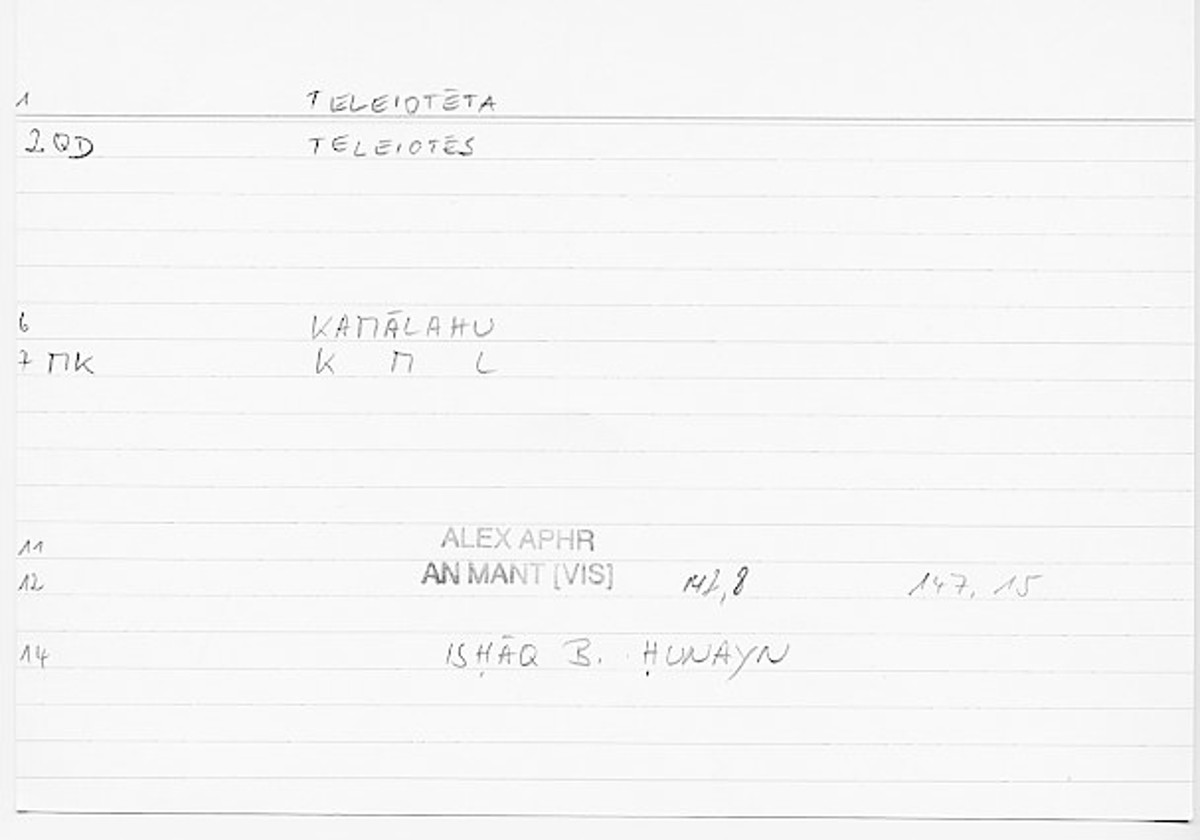 1 TELEIOTĒTA
2 QD TELEIOTĒS
6 KAMĀLAHU
7 MK K M L
11 ALEX APHR
12 AN MANT [VIS] 147, 15
14 ISḤĀQ B. ḤUNAYN